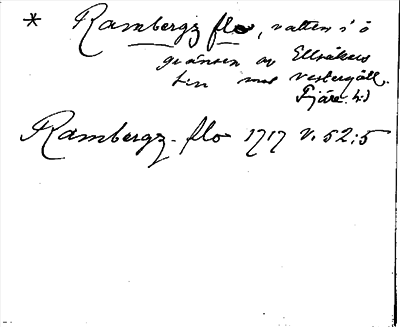 * Rambergz flo, vatten i ö
gränsen av Ellsåkers
lin mot Vestergötl.
Fjäre. h:d
Rambergz-flo 1717 V. 52:5